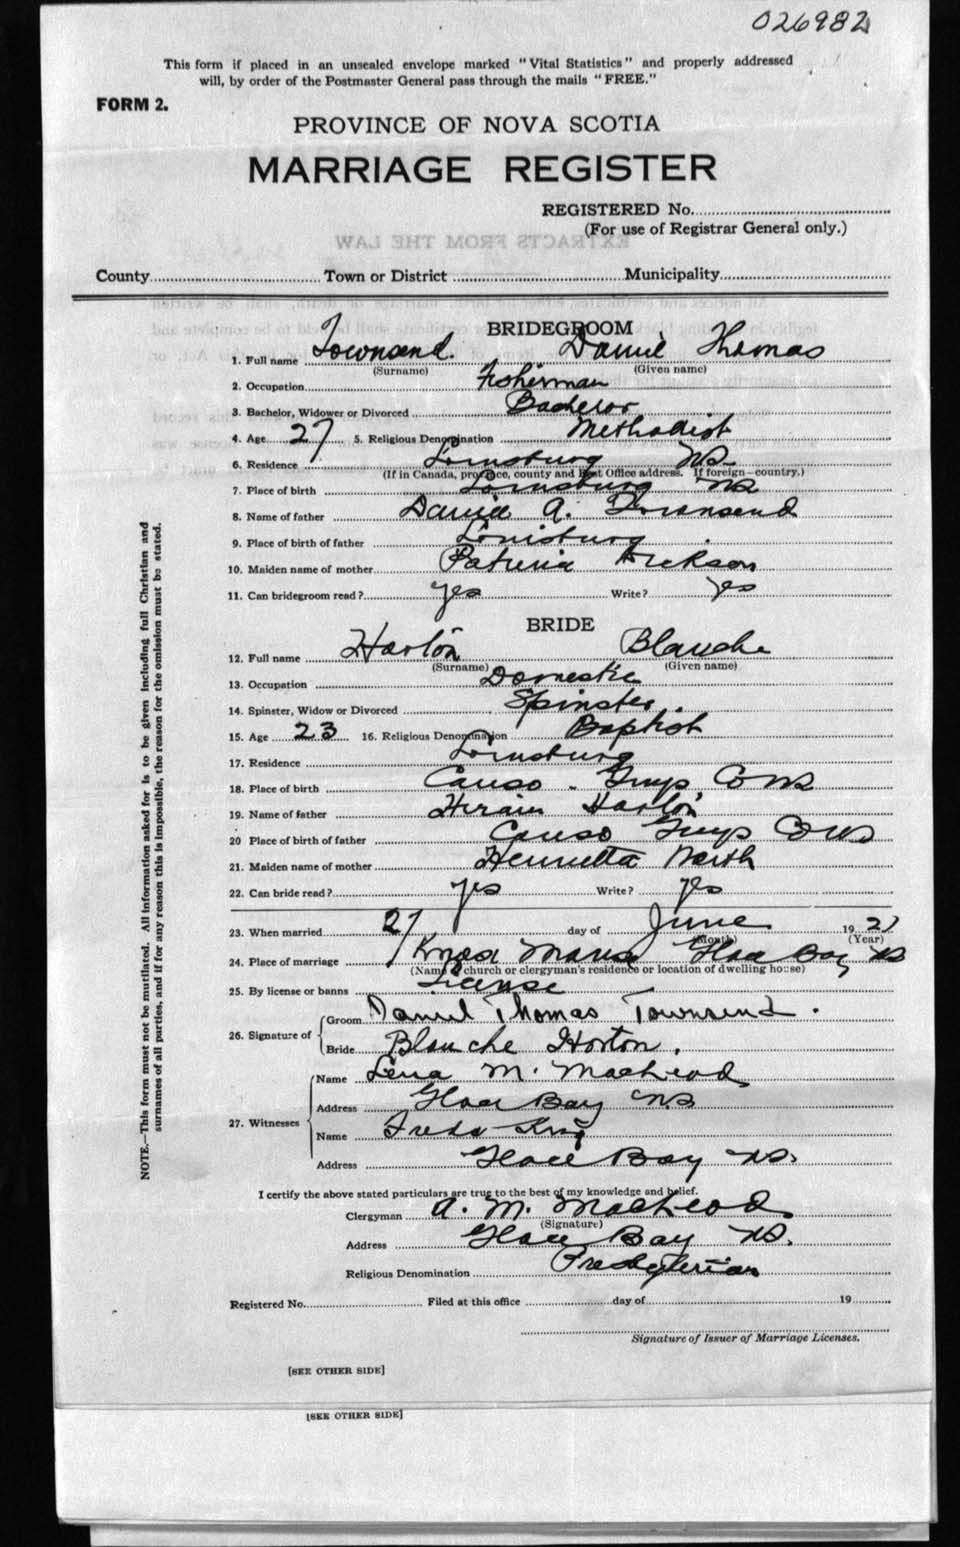 026982
This form if placed in an unsealed envelope marked "Vital Statistics" and properly addressed
will, by order of the Postmaster General pass through the mails "FREE."
FORM 2.
PROVINCE OF NOVA SCOTIA
MARRIAGE REGISTER
REGISTERED No.
(For use of Registrar General only.)
EXTRACTS FROM THE LAW
County Town or District Municipality
BRIDEGROOM
1. Full name Townsend. Daniel Thomas
(Surname) (Given name)
2. Occupation Fisherman
3. Bachelor, Widower or Divorced Bachelor
4. Age 27 5. Religious Denomination Methodist
6. Residence Louisburg NS
(If in Canada, province, county and Post Office address. If foreign—country.)
7. Place of birth Louisburg NS
8. Name of father Daniel A. Townsend
9. Place of birth of father Louisburg
10. Maiden name of mother Dickson
11. Can bridegroom read? yes Write? yes
BRIDE
12. Full name Horton Blanche
(Surname) (Given name)
13. Occupation Domestic
14. Spinster, Widow or Divorced Spinster.
15. Age 23 16. Religious Denomination Baptist
17. Residence Louisburg
18. Place of birth Canso. Guys. Co NS
19. Name of father Hiram Horton
20 Place of birth of father Canso Guys Co NS
21. Maiden name of mother Henrietta
22. Can bride read? yes Write? yes
23. When married 27 day of June 1921
(Month) (Year)
24. Place of marriage Knox Manse Glace Bay NS
(Name of church or clergyman's residence or location of dwelling house)
25. By license or banns License
26. Signature of Groom Daniel Thomas Townsend.
Bride Blanche Horton.
27. Witnesses Name Lena M. MacLeod
Address Glace Bay NS
Name Freda King
Address Glace Bay NS.
I certify the above stated particulars are true to the best of my knowledge and belief.
Clergyman A. M. MacLeod
(Signature)
Address Glace Bay NS.
Religious Denomination Presbyterian
Registered No. Filed at this office day of 19
Signature of Issuer of Marriage Licenses.
[SEE OTHER SIDE]
[SEE OTHER SIDE]
NOTE.—This form must not be mutilated. All information asked for is to be given including full Christian and
surnames of all parties, and if for any reason this is impossible, the reason for the omission must be stated.